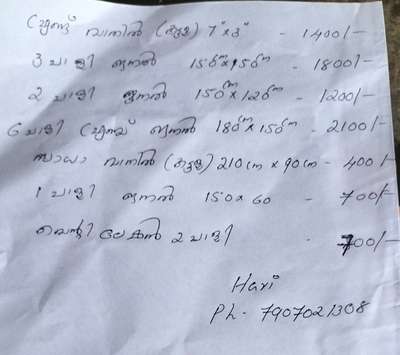 ഫ്രണ്ട് വാതിൽ (കട്ടള) 7" x 3" - 1400/-
3 പാളി ജനൽ 150m x 150m - 1800/-
2 പാളി ജനൽ 150m x 120m - 1200/-
6 പാളി ഫ്രണ്ട് ജനൽ 180m x 150m - 2100/-
സാധാ വാതിൽ (കട്ടള) 210 cm x 90 cm - 400/-
1 പാളി ജനൽ 150 x 60 - 700/-
2 പാളി - 700/-
Hari
Ph - 7907021308